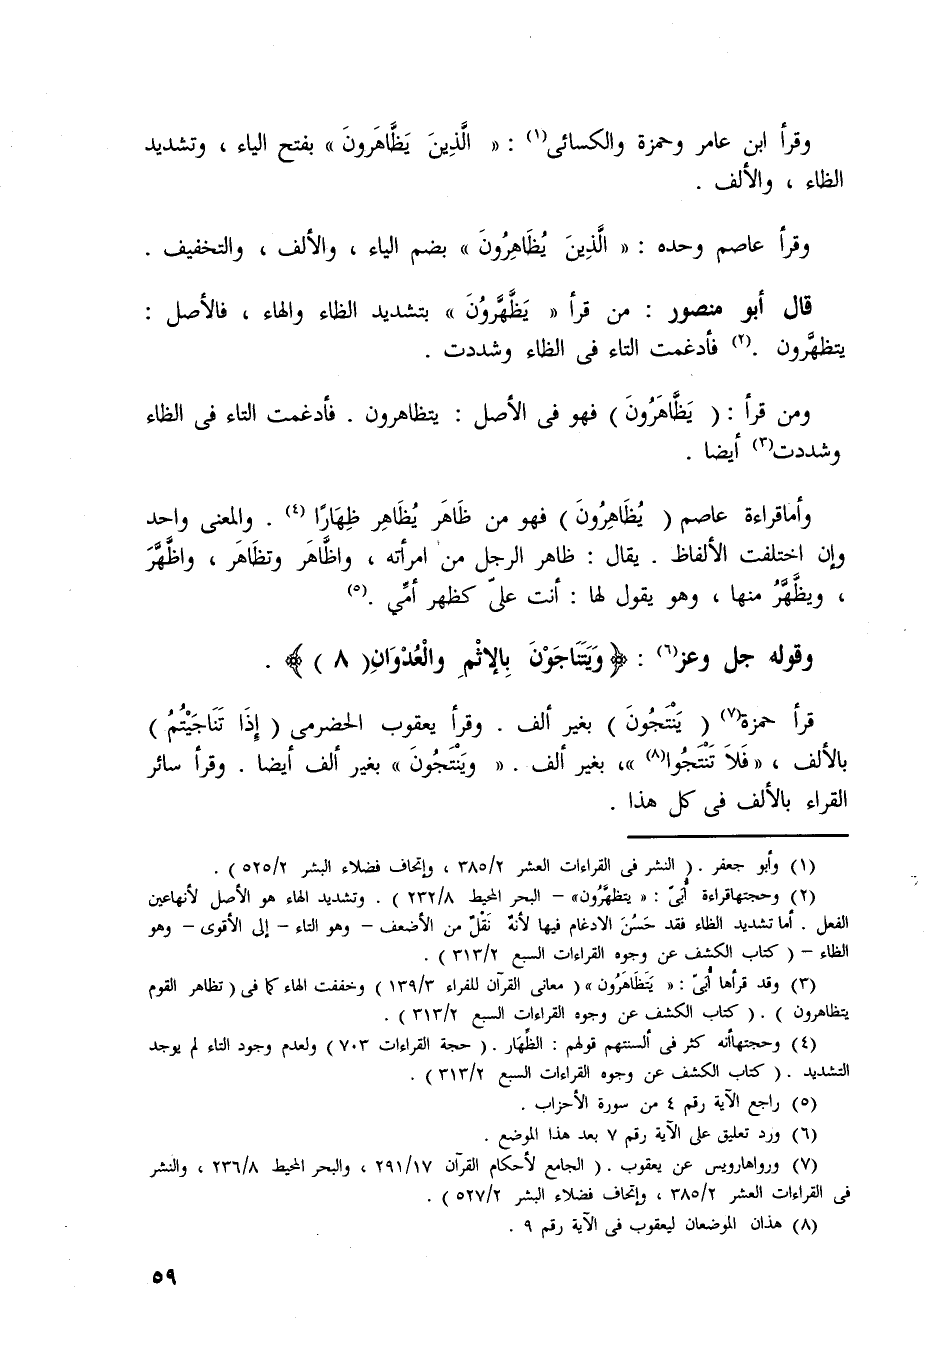 وقرأ ابن عامر وحمزة والكسائى(١) : « الَّذِينَ يَظَّاهَرونَ » بفتح الياء ، وتشديد
الظاء ، والألف .
وقرأ عاصم وحده : « الَّذِينَ يُظَاهِرُونَ » بضم الياء ، والألف ، والتخفيف .
قال أبو منصور : من قرأ « يَظَّهَّروُنَ » بتشديد الظاء والهاء ، فالأصل :
يتظهَّرون .(٢) فأدغمت التاء فى الظاء وشددت .
ومن قرأ : ( يَظَّاهَرُونَ ) فهو فى الأصل : يتظاهرون . فأدغمت التاء فى الظاء
وشددت(٣) أيضا .
وأماقراءة عاصم ( يُظَاهِرُونَ ) فهو من ظَاهَر يُظَاهِر ظِهَارًا (٤) . والمعنى واحد
وإن اختلفت الألفاظ . يقال : ظاهر الرجل من امرأته ، واظَّاهَر وتظَاهَر ، واظَّهَّرَ
، ويظَّهَّرُ منها ، وهو يقول لها : أنت علىّ كظهر أمِّي .(٥)
وقوله جل وعز(٦) : ﴿ وَيَتَنَاجَوْنَ بِالإثْمِ والْعُدْوَانِ( ٨ ) ﴾ .
قرأ حمزة(٧) ( يَنْتَجُونَ ) بغير ألف . وقرأ يعقوب الحضرمى ( إِذَا تَنَاجَيْتُمُ )
بالألف ، « فَلاَ تَنْتَجُوا(٨) »، بغير ألف . « ويَنْتَجُونَ » بغير ألف أيضا . وقرأ سائر
القراء بالألف فى كل هذا .
(١) وأبو جعفر . ( النشر فى القراءات العشر ٣٨٥/٢ ، وإتحاف فضلاء البشر ٥٢٥/٢ ) .
(٢) وحجتهاقراءة أُبَىّ : « يتظهَّرُون» – البحر المحيط ٢٣٢/٨ ) . وتشديد الهاء هو الأصل لأنهاعين
الفعل . أما تشديد الظاء فقد حَسُنَ الادغام فيها لأنهُ نَقْلٌ من الأضعف – وهو التاء – إلى الأقوى – وهو
الظاء – ( كتاب الكشف عن وجوه القراءات السبع ٣١٣/٢ ) .
(٣) وقد قرأها أُبَىّ : « يَتَظَاهَرُون »( معانى القرآن للفراء ١٣٩/٣ ) وخففت الهاء كما فى ( تظاهر القوم
يتظاهرون ) . ( كتاب الكشف عن وجوه القراءات السبع ٣١٣/٢ ) .
(٤) وحجتهاأنه كثر فى ألسنتهم قولهم : الظِّهَار . ( حجة القراءات ٧٠٣ ) ولعدم وجود التاء لم يوجد
التشديد . ( كتاب الكشف عن وجوه القراءات السبع ٣١٣/٢ ) .
(٥) راجع الآية رقم ٤ من سورة الأحزاب .
(٦) ورد تعليق على الآية رقم ٧ بعد هذا الموضع .
(٧) ورواهارويس عن يعقوب . ( الجامع لأحكام القرآن ٢٩١/١٧ ، والبحر المحيط ٢٣٦/٨ ، والنشر
فى القراءات العشر ٣٨٥/٢ ، وإتحاف فضلاء البشر ٥٢٧/٢ ) .
(٨) هذان الموضعان ليعقوب فى الآية رقم ٩ .
٥٩